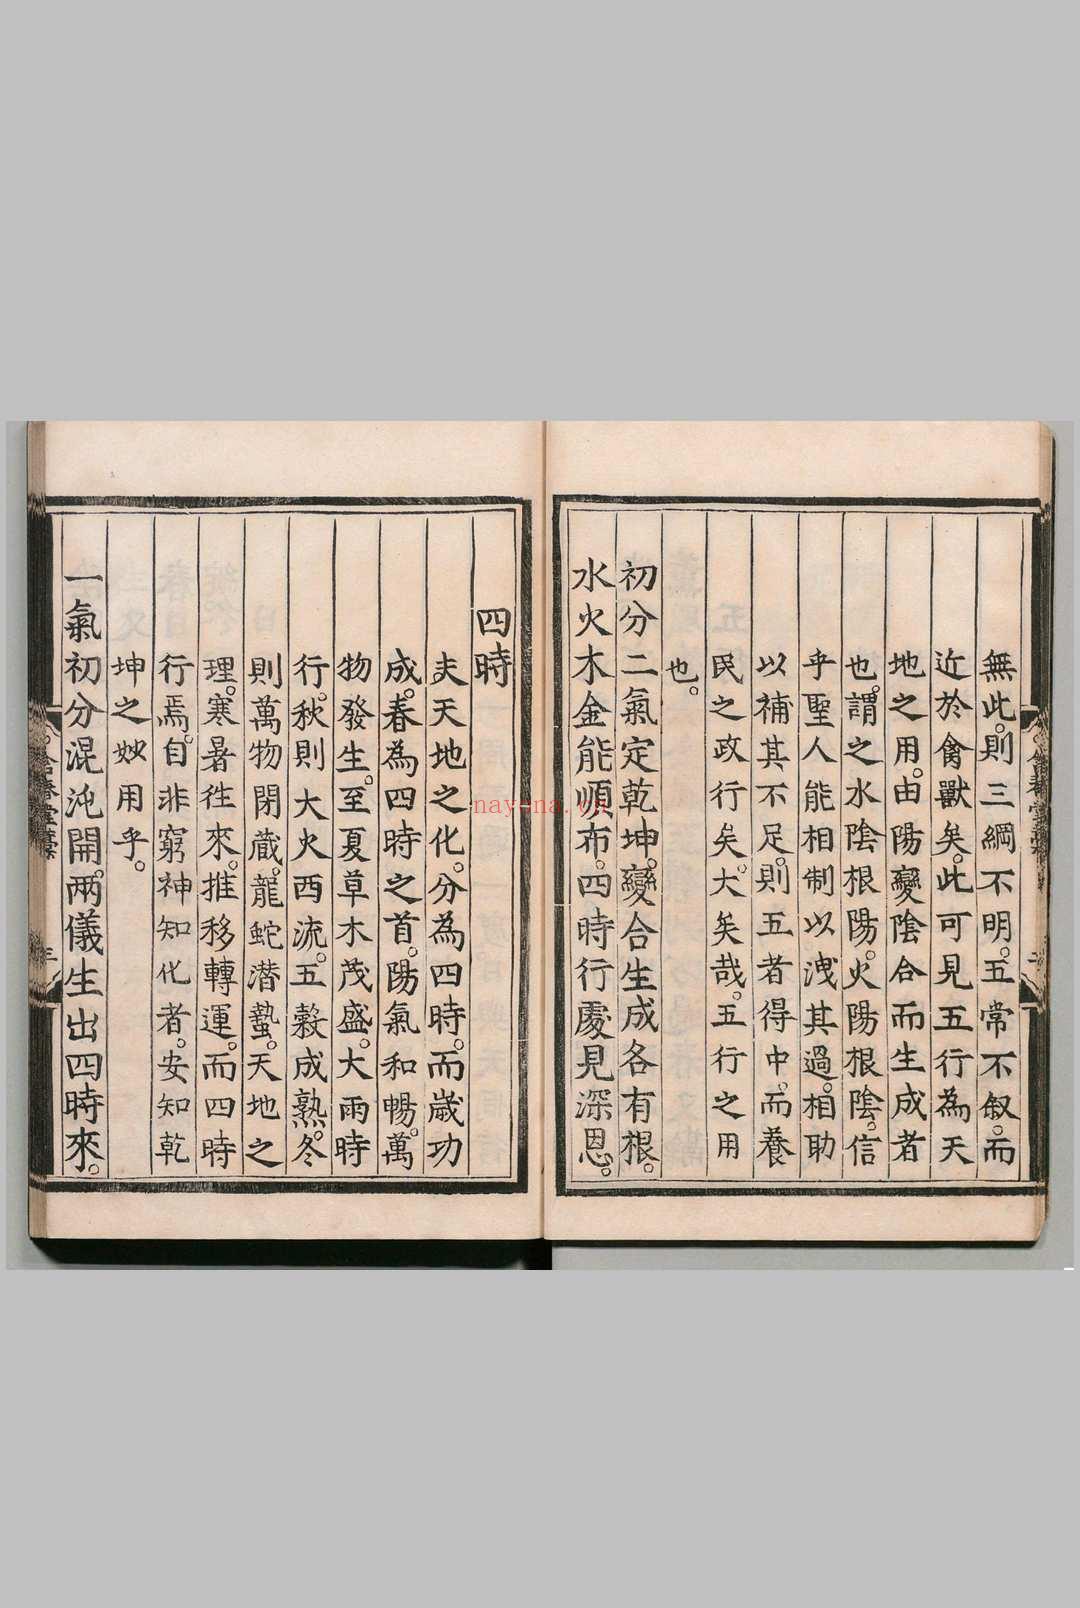 無此。則三綱不明。五常不叙。而
近於禽獸矣。此可見五行為天
地之用。由陽變陰合而生成者
也。謂之水陰根陽。火陽根陰。信
乎聖人能相制以洩其過。相助
以補其不足。則五者得中。而養
民之政行矣。大矣哉。五行之用
也。
初分二氣定乾坤。變合生成各有根。
水火木金能順布。四時行處見深恩。
四時
夫天地之化。分為四時。而歲功
成。春為四時之首。陽氣和暢。萬
物發生。至夏草木茂盛。大雨時
行。秋則大火西流。五穀成熟。冬
則萬物閉藏。龍蛇潛蟄。天地之
理。寒暑徃來。推移轉運。而四時
行焉。自非窮神知化者。安知乾
坤之妙用乎。
一氣初分混沌開。兩儀生出四時來。
nayona.cn